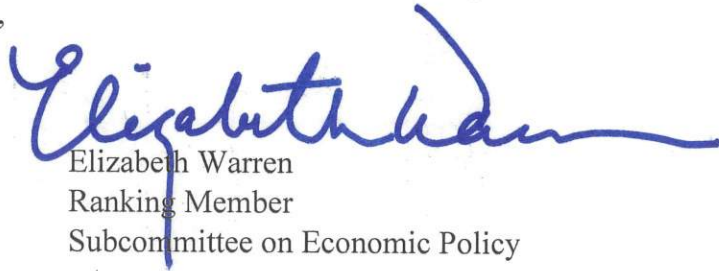 ,
Elizabeth Warren
Elizabeth Warren
Ranking Member
Subcommittee on Economic Policy